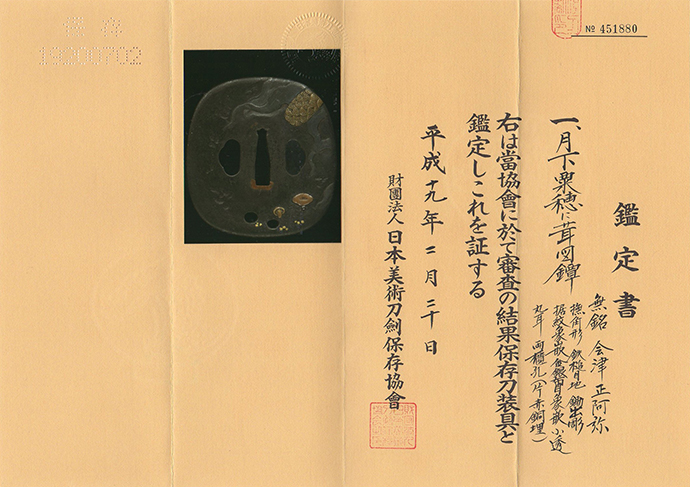 鑑定書
一、月下粟穂に茸図鐔
無銘 会津正阿弥
撫角形 鉄槌目地 鋤出彫
据紋象嵌 金銀象嵌 小透
丸耳 両櫃孔(片赤銅埋)
右は當協會に於て審査の結果保存刀装具と
鑑定しこれを証する
平成十九年二月二十日
財團法人 日本美術刀劍保存協會
№ 451880
保存